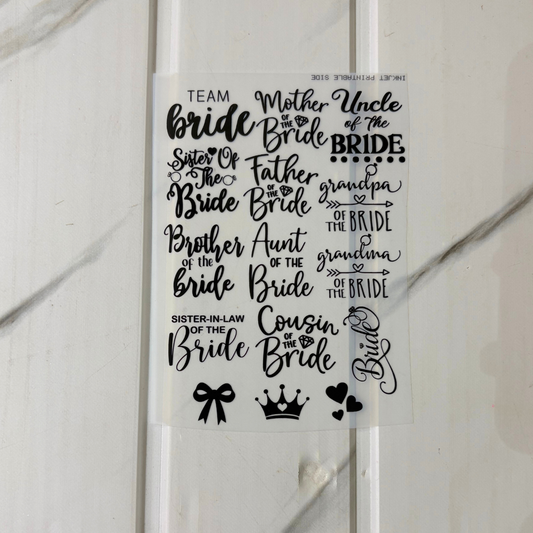 INKJET PRINTABLE SIDE
TEAM
bride
Mother
OF THE
Bride
Uncle
of The
BRIDE
Sister Of
The
Bride
Father
OF THE
Bride
grandpa
OF THE BRIDE
Brother
of the
bride
Aunt
OF THE
Bride
grandma
OF THE BRIDE
SISTER-IN-LAW
OF THE
Bride
Cousin
OF THE
Bride
Bride